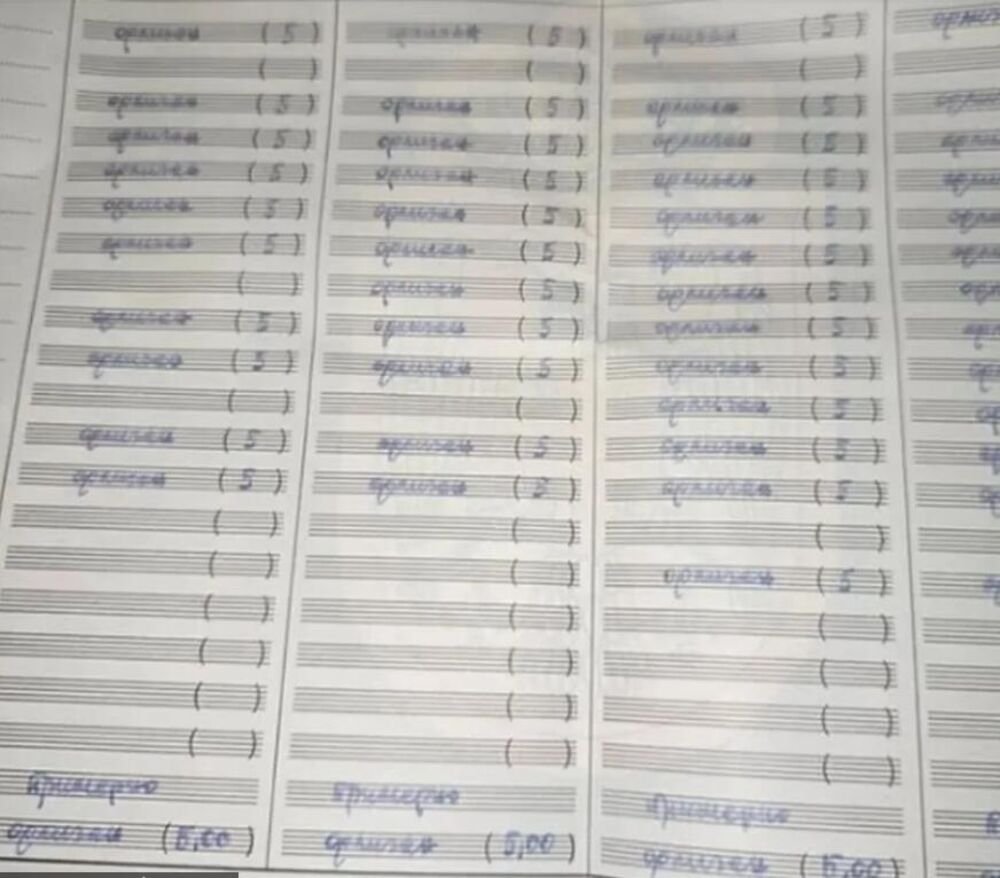 одличан (5)
( )
одличан (5)
одличан (5)
одличан (5)
одличан (5)
одличан (5)
( )
одличан (5)
одличан (5)
( )
одличан (5)
одличан (5)
( )
( )
( )
( )
( )
( )
Примерно
одличан (5,00)
одличан (5)
( )
одличан (5)
одличан (5)
одличан (5)
одличан (5)
одличан (5)
одличан (5)
одличан (5)
одличан (5)
( )
одличан (5)
одличан (5)
( )
( )
( )
( )
( )
( )
Примерно
одличан (5,00)
одличан (5)
( )
одличан (5)
одличан (5)
одличан (5)
одличан (5)
одличан (5)
одличан (5)
одличан (5)
одличан (5)
одличан (5)
одличан (5)
одличан (5)
( )
одличан (5)
( )
( )
( )
( )
Примерно
одличан (5,00)